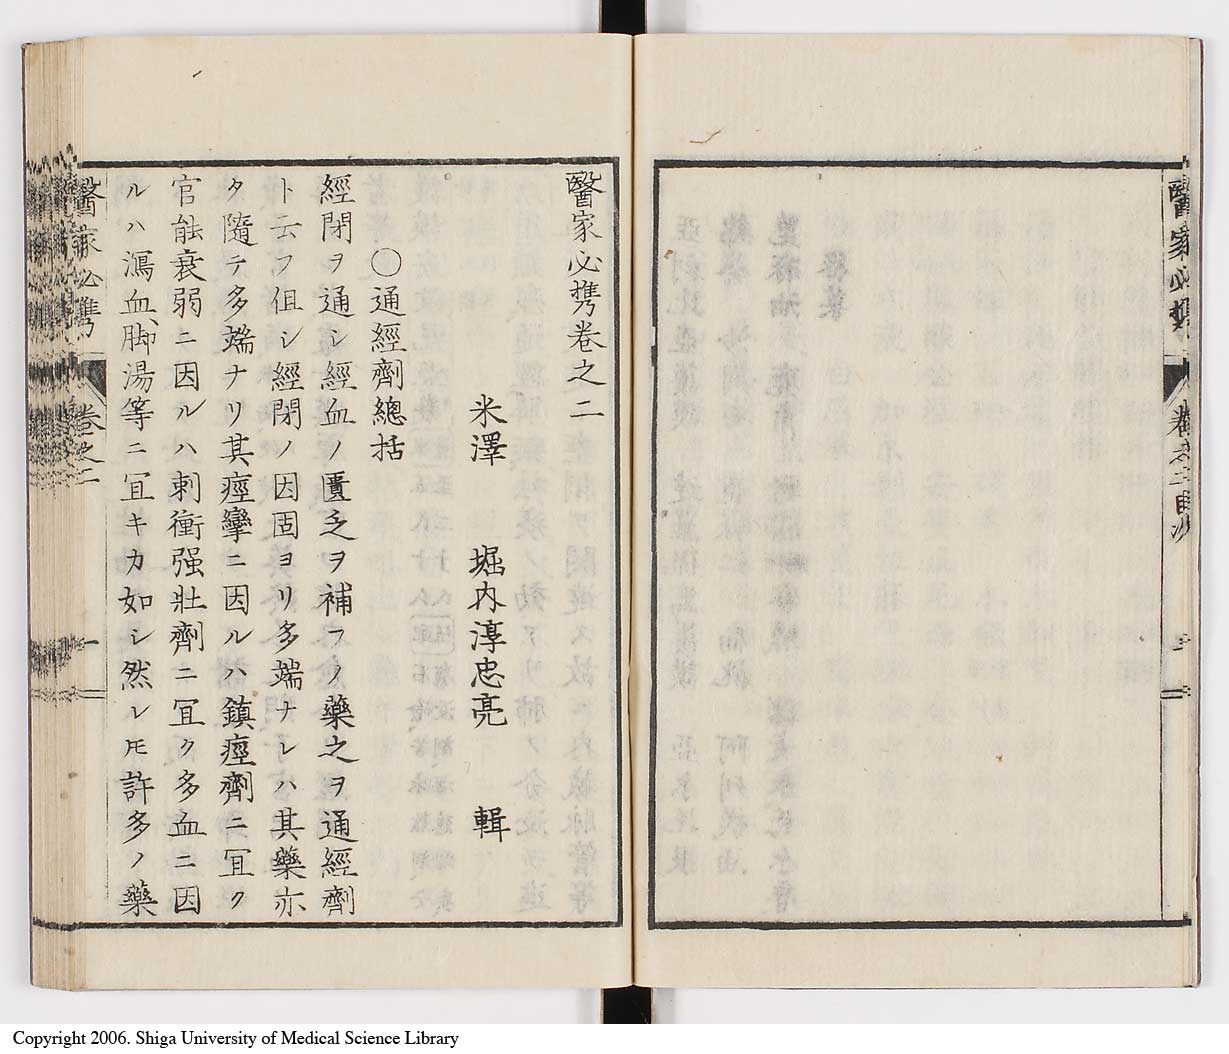 醫家必携
卷之二目次
醫家必携卷之二
米澤 堀内淳忠亮 輯
○通經劑總括
經閉ヲ通シ經血ノ匱乏ヲ補フノ藥之ヲ通經劑
ト云フ但シ經閉ノ因固ヨリ多端ナレハ其藥亦
タ隨テ多端ナリ其痙攣ニ因ルハ鎮痙劑ニ冝ク
官能衰弱ニ因ルハ刺衝强壯劑ニ冝ク多血ニ因
ルハ瀉血脚湯等ニ冝キカ如シ然レ𪜈許多ノ藥
醫家必携
卷之二
一
Copyright 2006. Shiga University of Medical Science Library